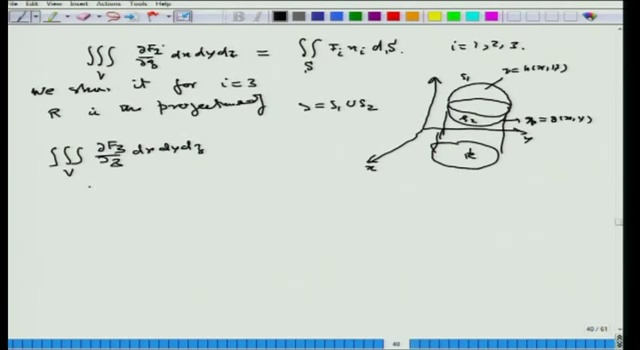 File Edit View Insert Actions Tools Help
∭_V ∂F_i/∂z dx dy dz = ∬_S F_i n_i dS. i = 1, 2, 3.
We show it for i = 3
R is the projection of S = S_1 ∪ S_2
∭_V ∂F_3/∂z dx dy dz
S_1 z = h(x, y)
S_2 z = g(x, y)
y
R
x
40 / 61
40